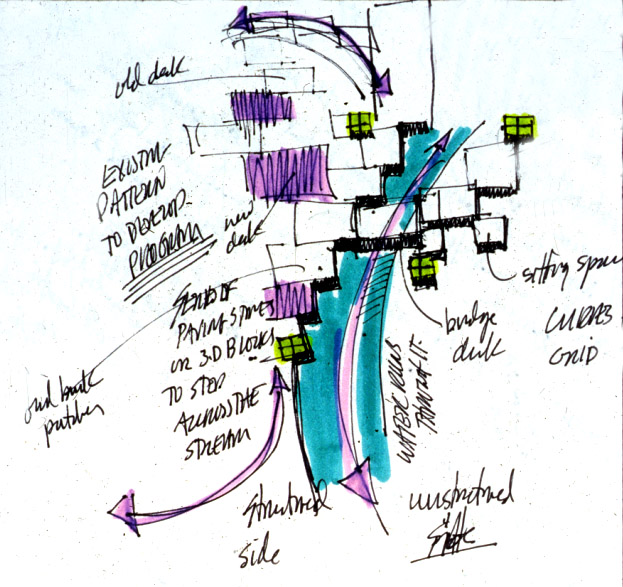 old deck
EXISTING
PATTERN
TO DEVELOP
PROGRAM
new
deck
SERIES OF
PAVING STONES
OR 3-D BLOCKS
TO STEP
ACROSS THE
STREAM
patches
structured
side
WATER RUNS
THROUGH IT.
bridge
deck
sitting space
CURVES
GRID
unstructured
side